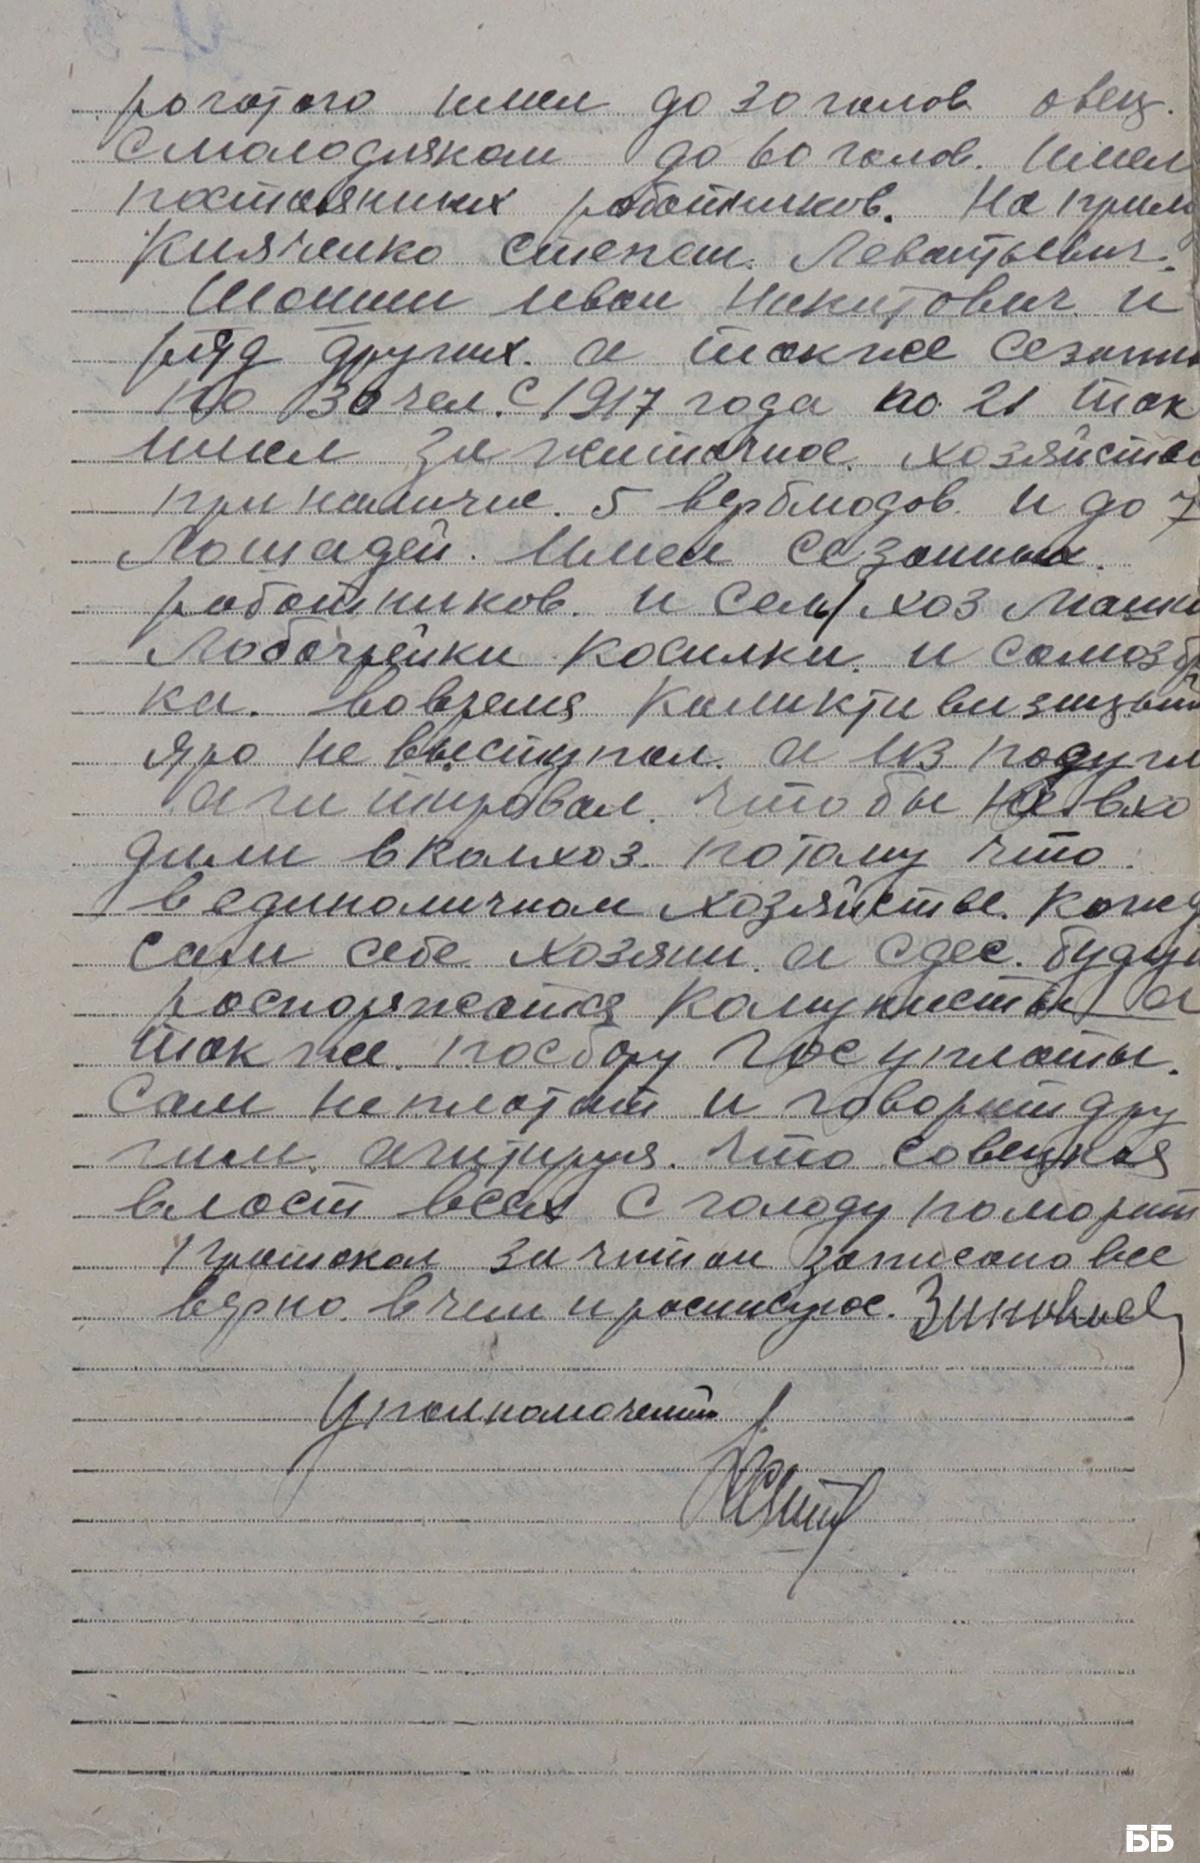 рогатого имел до 30 голов овец.
смолодняком до 60 голов. Имел
постоянных работников. На прим
Князенко Степан. Леватьевич.
Шонин Иван Никитович и
ряд других. а также сезонн
по 30 чел. с 1917 года по 21 так
имел зажиточное. хозяйство
при наличие. 5 верблюдов и до 7
Лошадей. Имел сезонных.
работников. и сель/хоз Маши
Лобогрейки косилки. и самозбр
ка. вовремя
яро не выступал. а из подугл
агитировал. что бы не вхо
дили в колхоз. потому что
в единоличном хозяйстве. кажд
сам себе хозяин. а сдес. будут
роспоряжатся Комунисты а
так же. посбору Госуплаты.
Сам неплотит и говорит дру
гим. агитируя. что совецкая
власт всех с голоду поморит
Протокол зачитан записано все
вярно. в чем и росписуюс. Зиновьев
Уполномочений